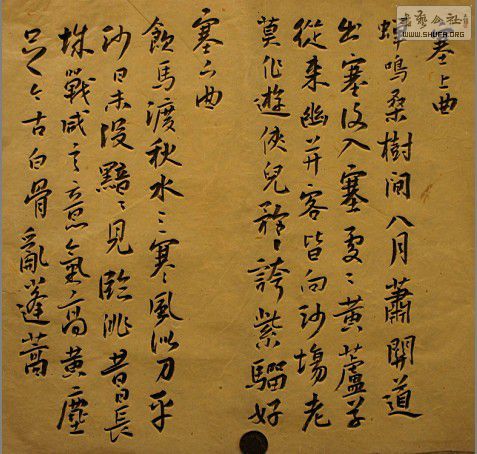 塞上曲
蟬鳴桑樹间八月蕭関道
出塞復入塞處〻黄蘆草
從来幽并客皆向沙塲老
莫作遊俠兒矜〻誇紫騮好
塞下曲
飲馬渡秋水〻寒風似刀平
沙日未没黯〻見臨洮昔日長
城戰咸言意氣高黄塵
足今古白骨亂蓬蒿
书艺公社
WWW.SHUFA.ORG